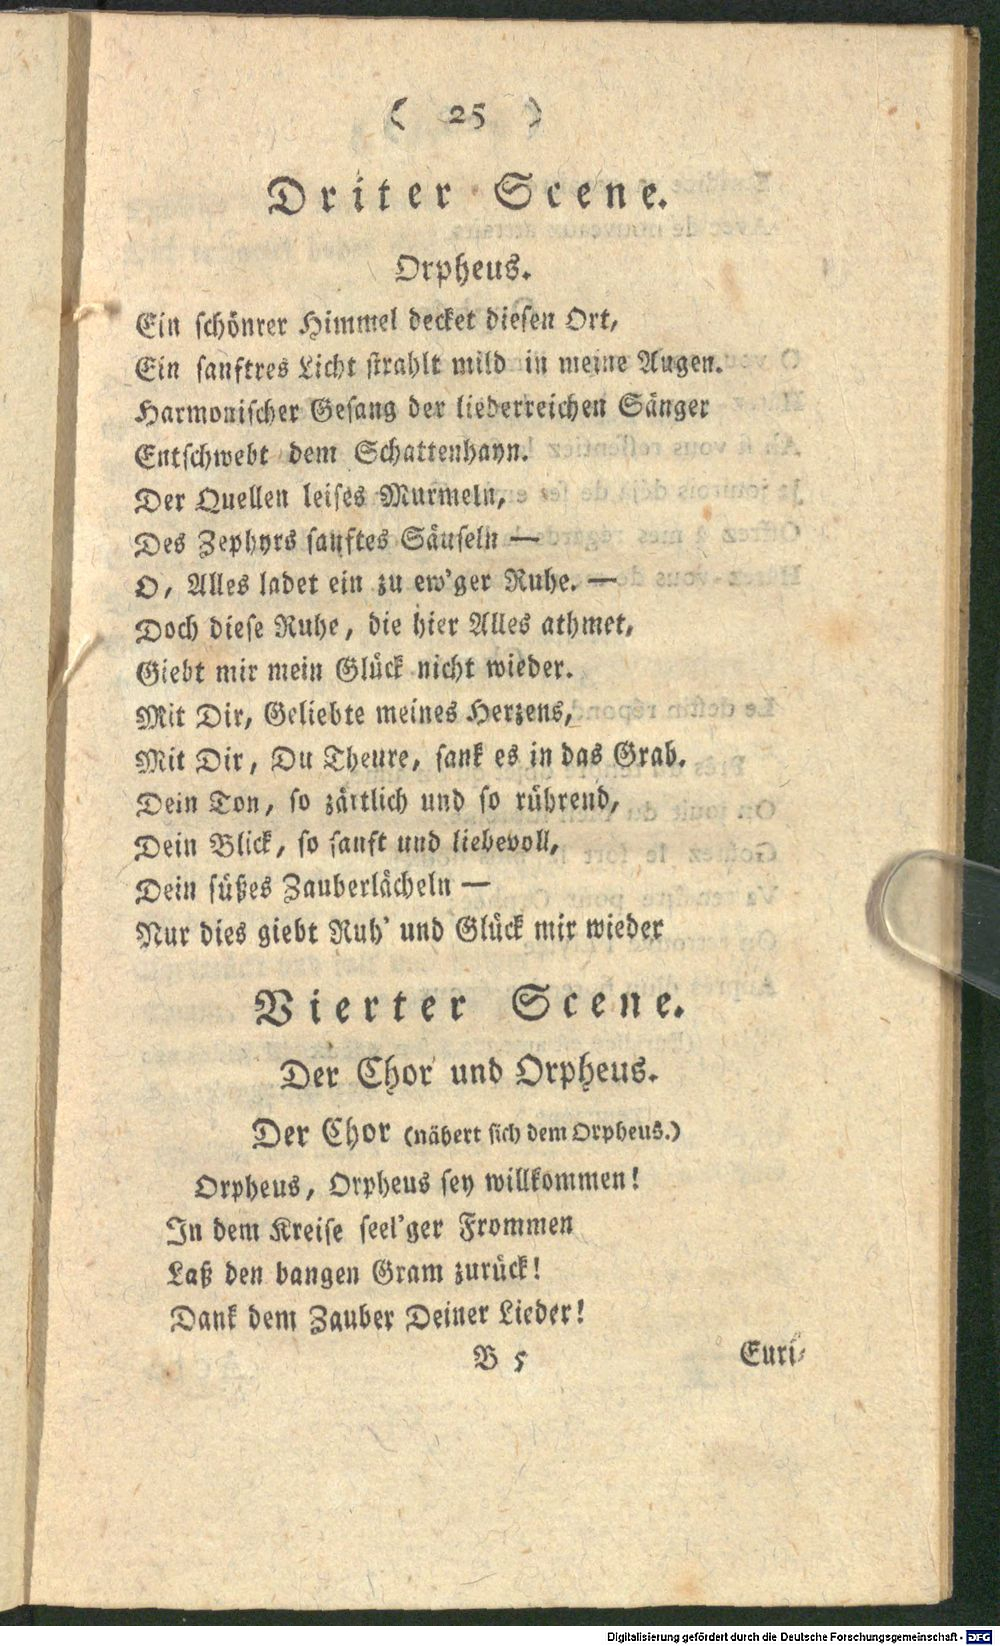 ( 25 )
Driter Scene.
Orpheus.
Ein schönrer Himmel decket diesen Ort,
Ein sanftres Licht strahlt mild in meine Augen.
Harmonischer Gesang der liederreichen Sänger
Entschwebt dem Schattenhayn.
Der Quellen leises Murmeln,
Des Zephyrs sanftes Säuseln —
O, Alles ladet ein zu ew'ger Ruhe. —
Doch diese Ruhe, die hier Alles athmet,
Giebt mir mein Glück nicht wieder.
Mit Dir, Geliebte meines Herzens,
Mit Dir, Du Theure, sank es in das Grab.
Dein Ton, so zärtlich und so rührend,
Dein Blick, so sanft und liebevoll,
Dein süßes Zauberlächeln —
Nur dies giebt Ruh' und Glück mir wieder
Vierter Scene.
Der Chor und Orpheus.
Der Chor (nähert sich dem Orpheus.)
Orpheus, Orpheus sey willkommen!
In dem Kreise seel'ger Frommen
Laß den bangen Gram zurück!
Dank dem Zauber Deiner Lieder!
B 5 Euri-
Digitalisierung gefördert durch die Deutsche Forschungsgemeinschaft - DFG